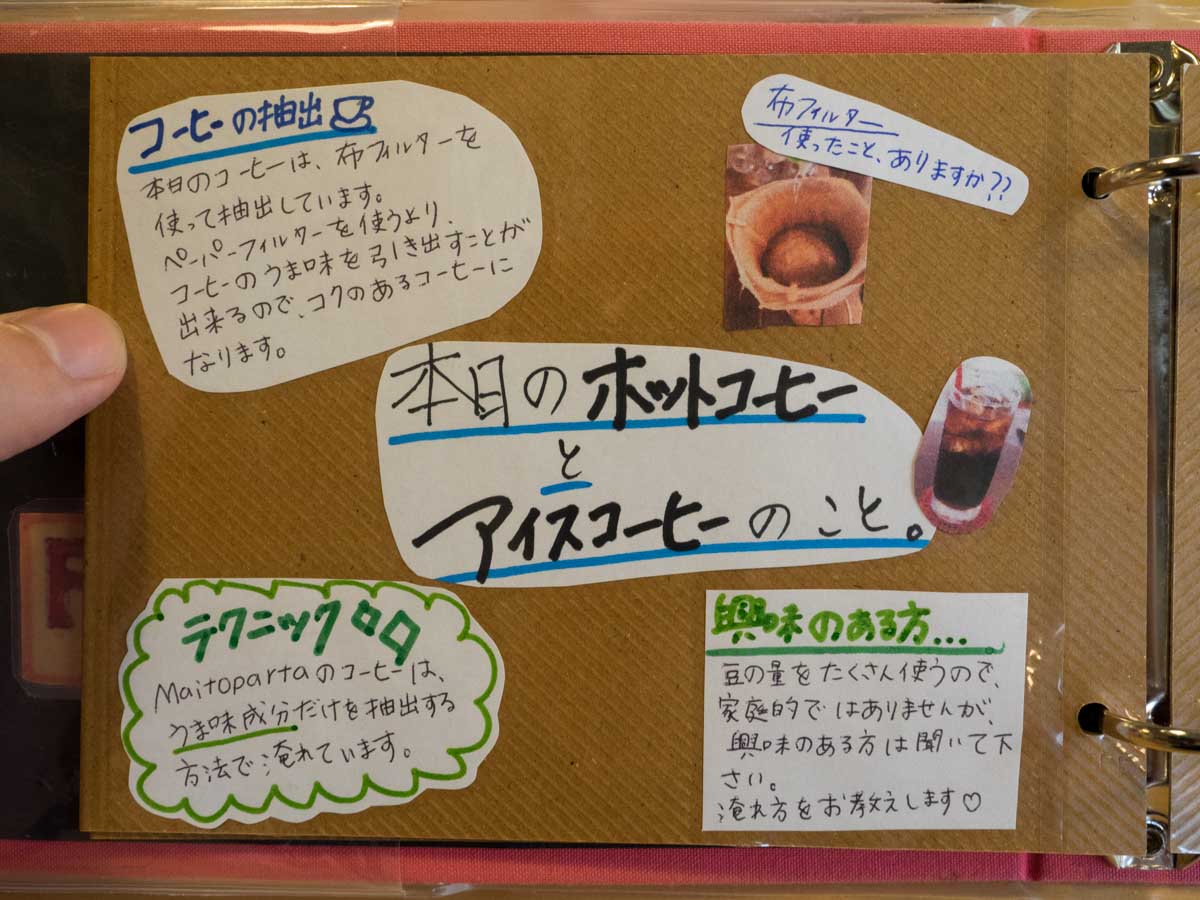 コーヒーの抽出
本日のコーヒーは、布フィルターを
使って抽出しています。
ペーパーフィルターを使うより、
コーヒーのうま味を引き出すことが
出来るので、コクのあるコーヒーに
なります。
布フィルター
使ったこと、ありますか??
本日のホットコーヒー
と
アイスコーヒーのこと。
テクニック
Maitopartaのコーヒーは、
うま味成分だけを抽出する
方法で淹れています。
興味のある方...。
豆の量をたくさん使うので、
家庭的ではありませんが、
興味のある方は聞いて下
さい。
淹れ方をお教えします♡